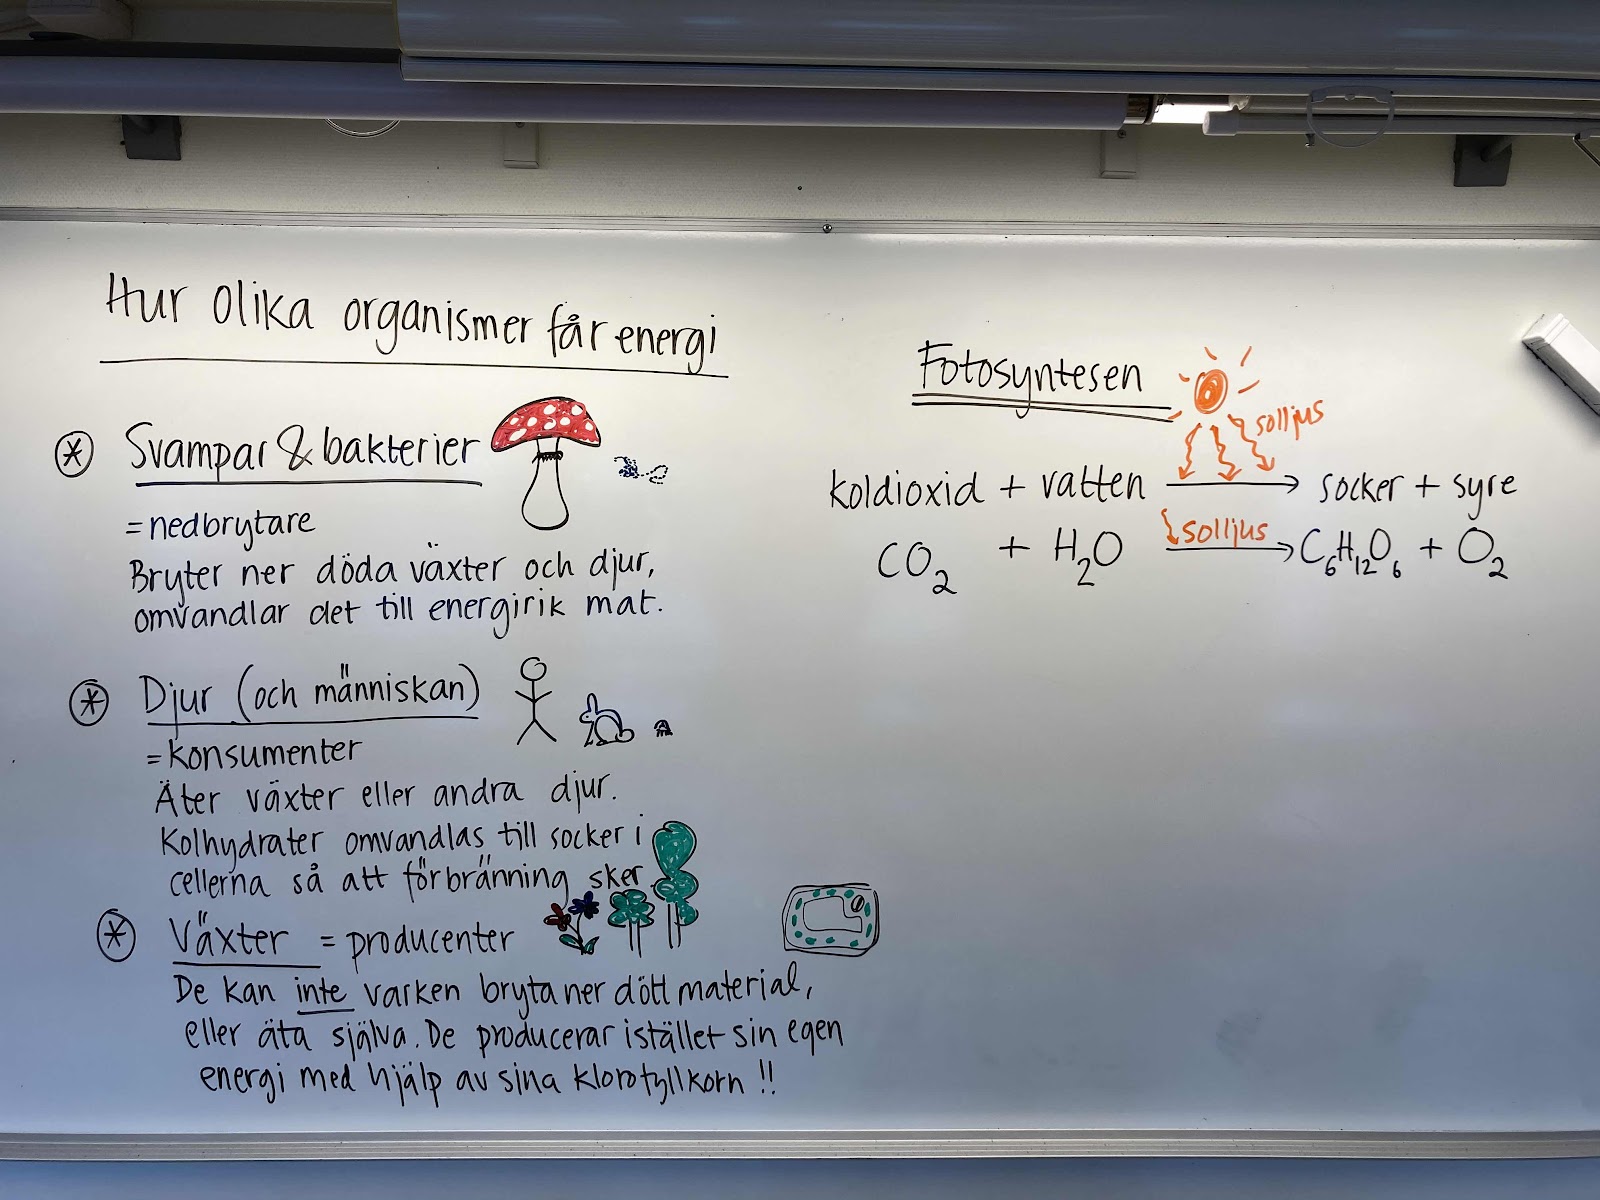 Hur olika organismer får energi
Svampar & bakterier
= nedbrytare
Bryter ner döda växter och djur,
omvandlar det till energirik mat.
Djur (och människan)
= konsumenter
Äter växter eller andra djur.
Kolhydrater omvandlas till socker i
cellerna så att förbränning sker
Växter = producenter
De kan inte varken bryta ner dött material,
eller äta själva. De producerar istället sin egen
energi med hjälp av sina klorofyllkorn !!
Fotosyntesen
solljus
koldioxid + vatten → socker + syre
solljus
CO₂ + H₂O → C₆H₁₂O₆ + O₂